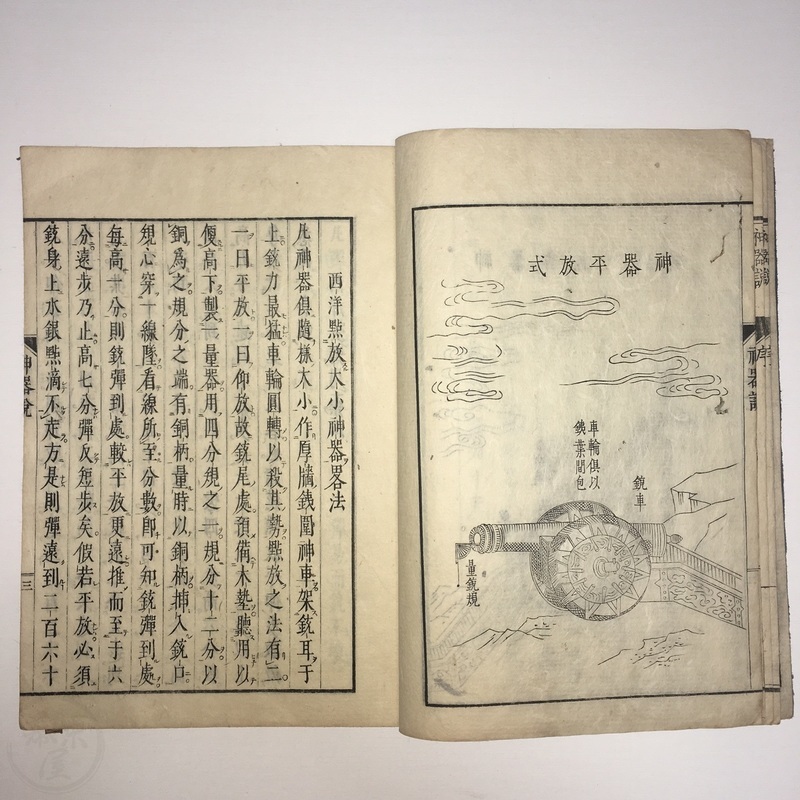 神器平放式
銃車
車輪俱以
銕葉間包
量銃規
西洋㸃放大小神器畧法
凡神器俱隨樣大小作厚牆銕圍神車架銃耳于
上銃力最猛車輪圓轉以殺其勢㸃放之法有二
一曰平放一曰仰放故銃尾處預備木墊聽用以
便高下製一量器用四分規之一規分十二分以
銅爲之規分之端有銅柄量時以銅柄揷入銃口
規心穿一線墜看線所至分數卽可知銃彈到處
每高一分則銃彈到處較平放更遠推而至于六
分遠步乃止高七分彈反短步矣假若平放必須
銃身上水銀㸃滴不走方是則彈遠到二百六十
神器說
三